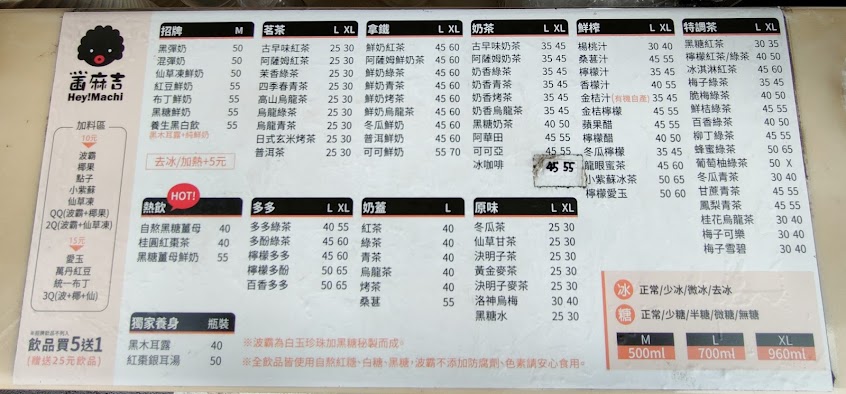 嵐麻吉
Hey!Machi
加料區
10元
波霸
椰果
點子
小紫蘇
仙草凍
QQ(波霸+椰果)
2Q(波霸+仙草凍)
15元
愛玉
萬丹紅豆
統一布丁
3Q(波+椰+仙)
飲品買5送1
(機送25元飲品)
招牌 M
黑彈奶 50
混彈奶 50
仙草凍鮮奶 50
紅豆鮮奶 55
布丁鮮奶 55
黑糖鮮奶 55
養生黑白飲 55
黑木耳露+純鮮奶
去冰/加熱+5元
茗茶 L XL
古早味紅茶 25 30
阿薩姆紅茶 25 30
茉香綠茶 25 30
四季春青茶 25 30
高山烏龍茶 25 30
烏龍綠茶 25 30
烏龍青茶 25 30
日式玄米烤茶 25 30
普洱茶 25 30
拿鐵 L XL
鮮奶紅茶 45 60
阿薩姆鮮奶茶 45 60
鮮奶綠茶 45 60
鮮奶青茶 45 60
鮮奶烤茶 45 60
鮮奶烏龍茶 45 60
冬瓜鮮奶 45 60
普洱鮮奶 45 60
可可鮮奶 55 70
奶茶 L XL
古早味奶茶 35 45
阿薩姆奶茶 35 45
奶香綠茶 35 45
奶香青茶 35 45
奶香烤茶 35 45
奶香烏龍茶 35 45
黑糖奶茶 40 50
阿華田 45 55
可可亞 45 55
冰咖啡 45 55
鮮榨 L XL
楊桃汁 30 40
桑葚汁 45 55
檸檬汁 45 55
香檬汁 40 55
金桔汁(有機自產) 35 45
金桔檸檬 45 55
蘋果醋 45 55
檸檬醋 40 50
冬瓜檸檬 35 45
龍眼蜜茶 45 60
小紫蘇冰茶 50 65
檸檬愛玉 50 60
特調茶 L XL
黑糖紅茶 30 35
檸檬紅茶/綠茶 40 50
冰淇淋紅茶 45 60
梅子綠茶 35 45
脆梅綠茶 40 50
鮮桔綠茶 45 55
百香綠茶 40 50
柳丁綠茶 45 55
蜂蜜綠茶 50 65
葡萄柚綠茶 50 X
冬瓜青茶 30 40
甘蔗青茶 45 55
鳳梨青茶 45 55
桂花烏龍茶 30 40
梅子可樂 30 40
梅子雪碧 30 40
熱飲 HOT!
自熬黑糖薑母 40
桂圓紅棗茶 40
黑糖薑母鮮奶 55
多多 L XL
多多綠茶 40 55
多酚綠茶 45 60
檸檬多多 45 60
檸檬多酚 50 65
百香多多 50 65
奶蓋 L
紅茶 40
綠茶 40
青茶 40
烏龍茶 40
烤茶 40
桑葚 55
原味 L XL
冬瓜茶 25 30
仙草甘茶 25 30
決明子茶 25 30
黃金麥茶 25 30
決明子麥茶 25 30
洛神烏梅 30 40
黑糖水 25 30
獨家養身 瓶裝
黑木耳露 40
紅棗銀耳湯 50
※波霸為白玉珍珠加黑糖秘製而成。
※全飲品皆使用自熬紅糖、白糖、黑糖，波霸不添加防腐劑、色素請安心食用。
冰 正常/少冰/微冰/去冰
糖 正常/少糖/半糖/微糖/無糖
M L XL
500ml 700ml 960ml